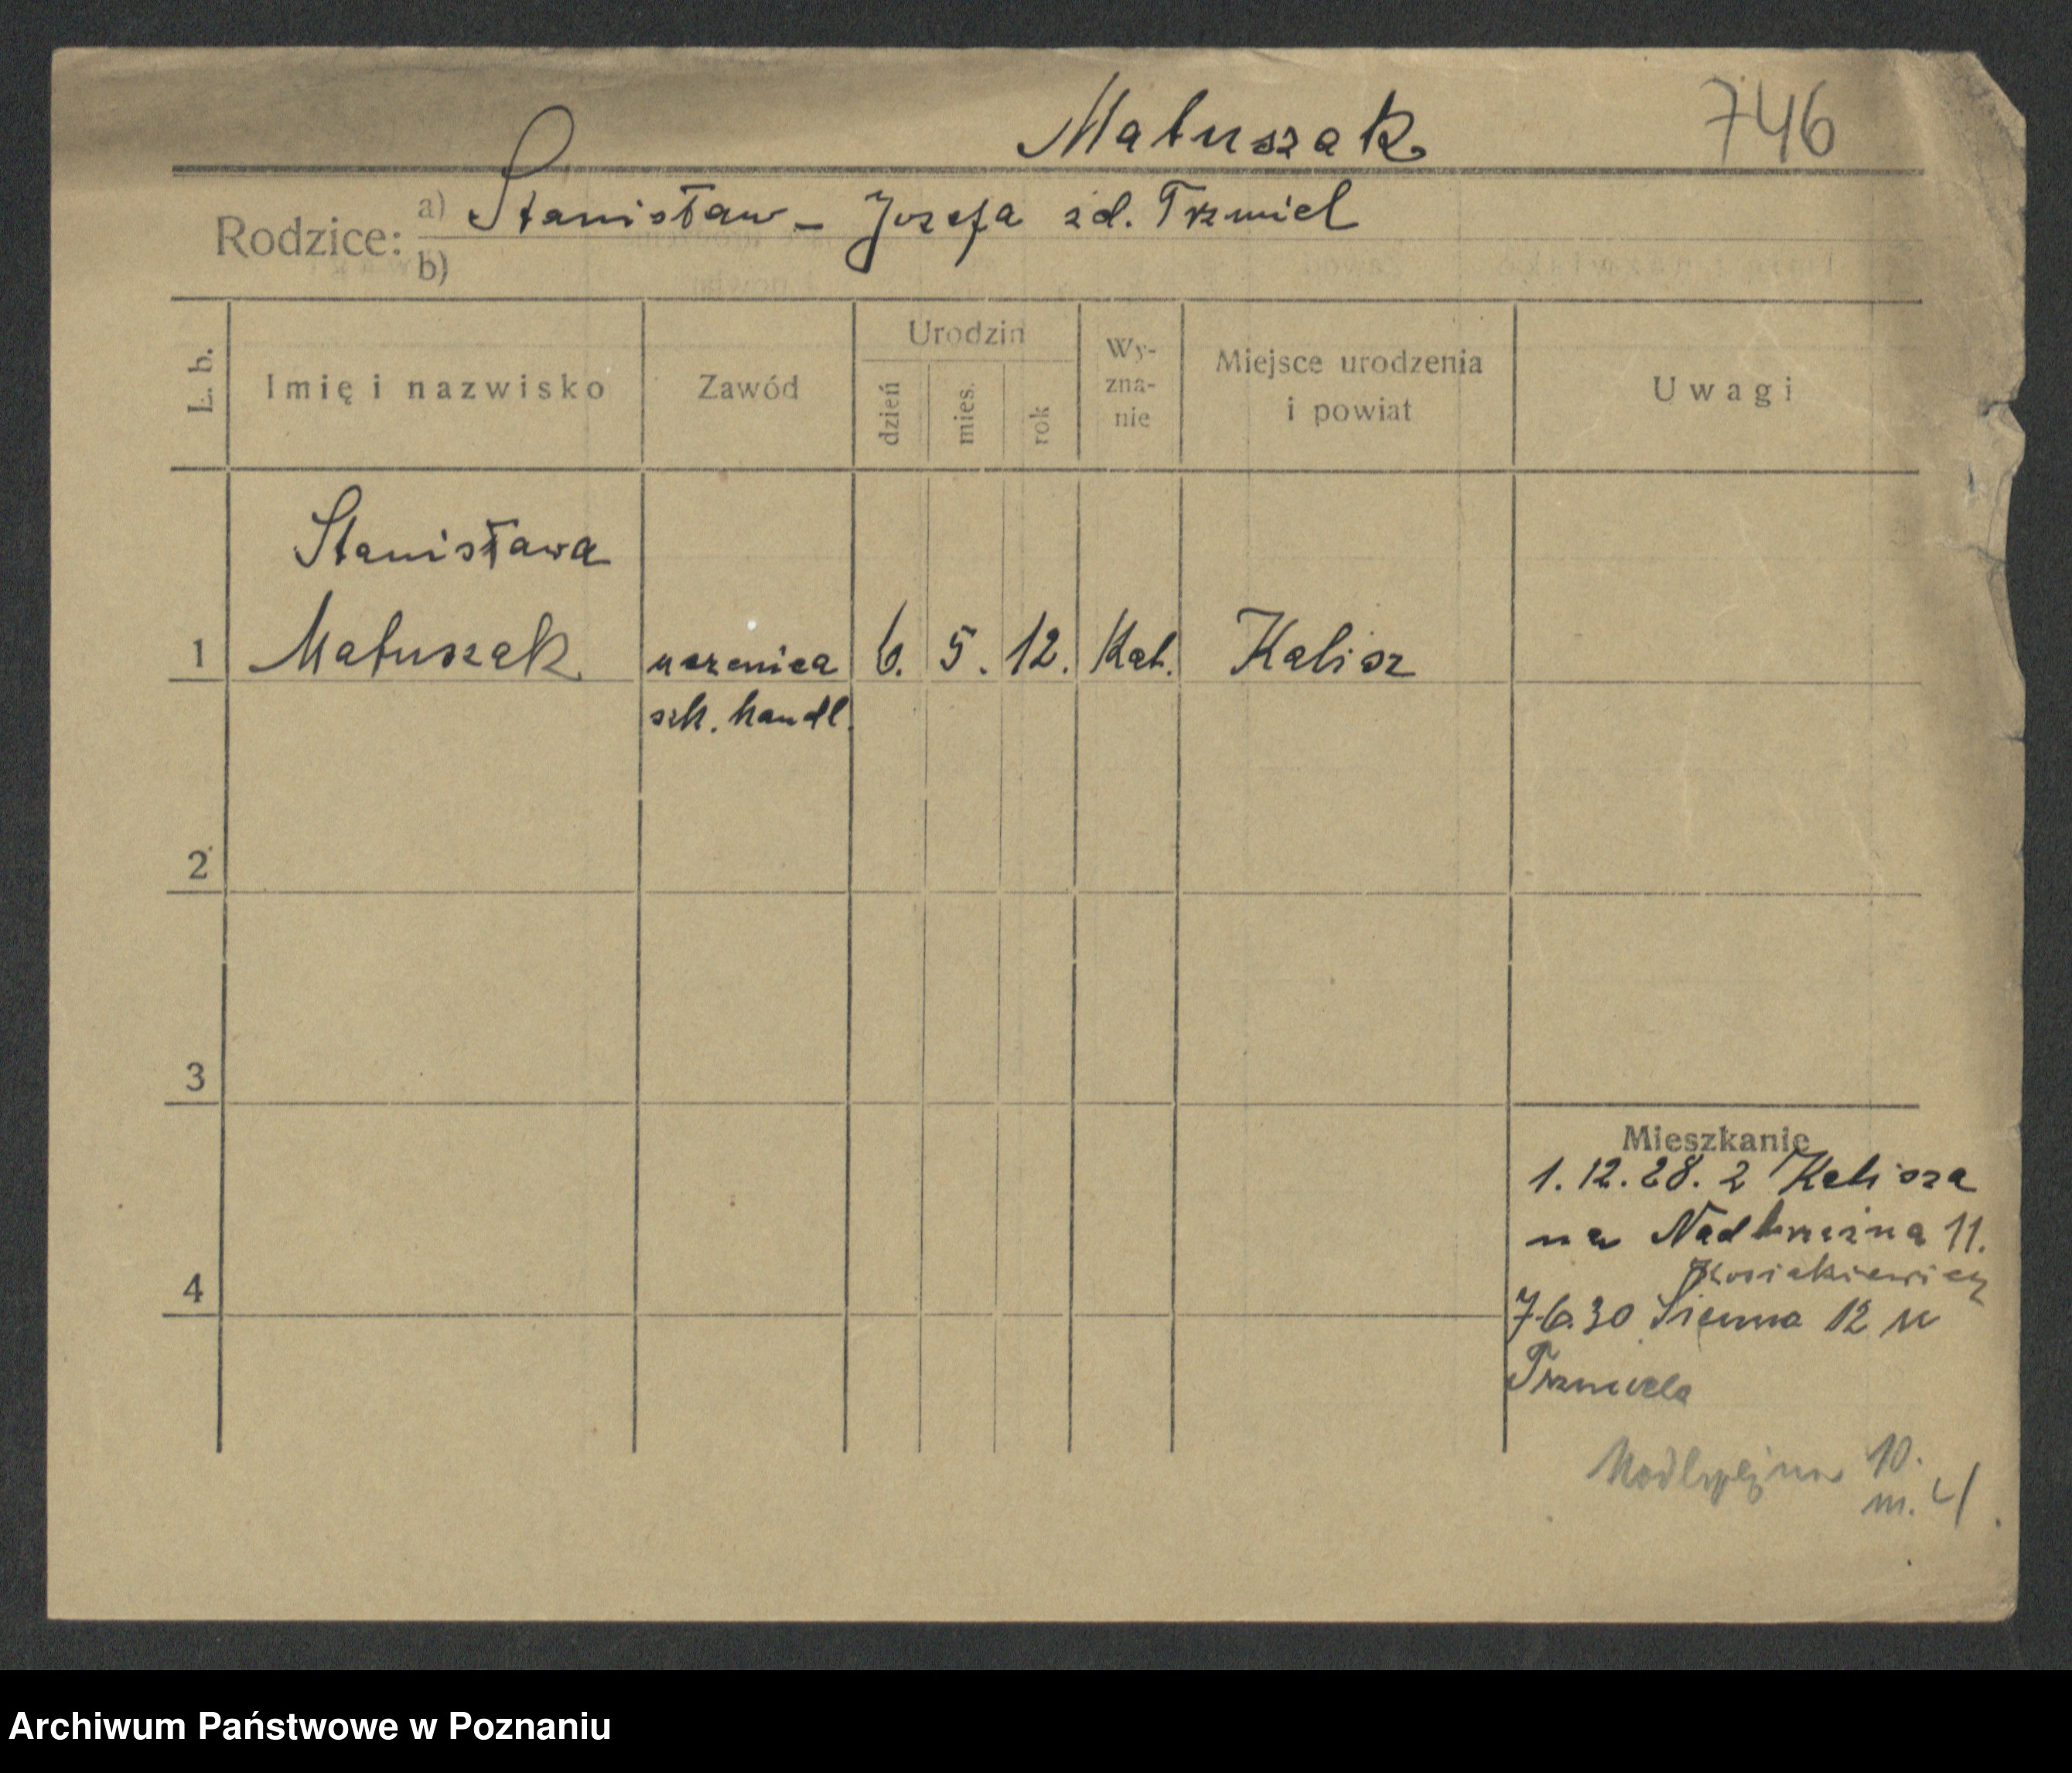 Matuszak 746
Rodzice: a) Stanisław - Jozefa zd. Trzmiel
b)
L. b. Imię i nazwisko Zawód Urodzin dzień mies. rok Wy-zna-nie Miejsce urodzenia i powiat Uwagi
Stanisława
1 Matuszak uczenica 6. 5. 12. Kat. Kalisz
szk. handl.
2
3
Mieszkanie
1.12.28. z Kalisza
na Nadbrzeżna 11.
4
7.6.30 Sienna 12 u
Trzmiela
10.
m. 4.
Archiwum Państwowe w Poznaniu